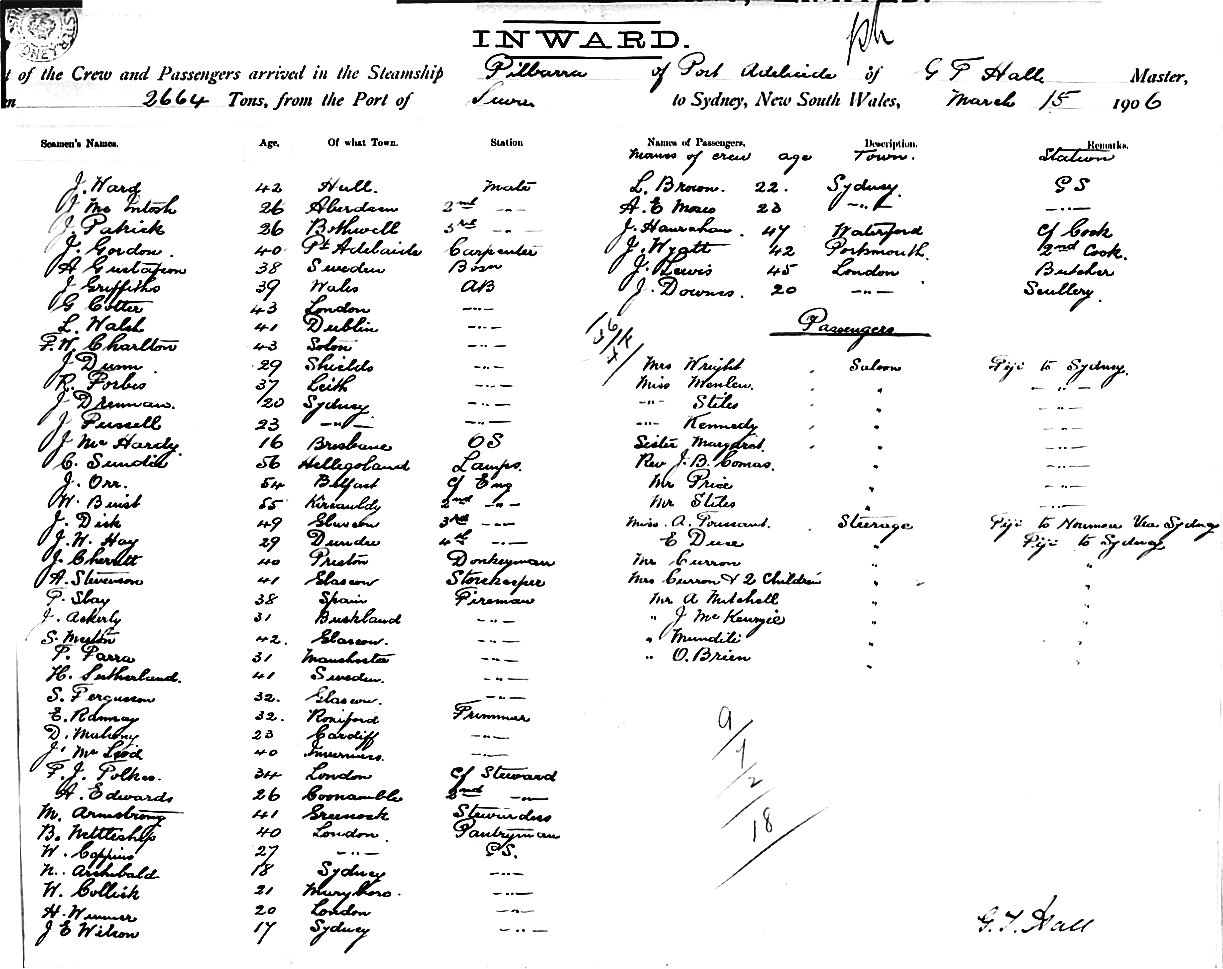 INWARD.
of the Crew and Passengers arrived in the Steamship Pilbarra of Port Adelaide of G F Hall Master,
2664 Tons, from the Port of to Sydney, New South Wales, March 15 1906
Seamen's Names. Age. Of what Town. Station
J. Ward 42 Hull. Mate
J Mc Intosh 26 Aberdeen 2nd -"-
J Patrick 26 Bothwell 3rd -"-
J. Gordon. 40 Pt Adelaide Carpenter
A Gustafson 38 Sweden Bosn
J Griffiths 39 Wales AB
G Cotter 43 London -"-
L. Walsh 41 Dublin -"-
F. W. Charlton 43 -"-
J. Dunn 29 Shields -"-
R. Forbes 37 Leith -"-
J Drennan. 20 Sydney -"-
J Russell 23 -"- -"-
J Mc Hardy 16 Brisbane OS
C. Sundin 56 Heliegoland Lamps.
J. Orr. 54 Belfast Cf Eng
W. Buist 55 2nd -"-
J. Dick 49 3rd -"-
J. W. Hay 29 Dundee 4th -"-
J. 40 Preston Donkeyman
A. Stevenson 41 Glascow Storekeeper
P. Slay 38 Spain Fireman
J. Ackerly 31 Buckland -"-
S. 42. Glascow. -"-
P. Parra 31 Manchester -"-
H. Sutherland. 41 Sweden. -"-
S. Fergusson 32. Glascow. -"-
E. Ramsay 32. Trimmer
D. Mulrony 23 Cardiff -"-
J. Mc Leod 40 Inverness. -"-
F. J. 34 London Cf Steward
A. Edwards 26 Coonamble 2nd -"-
M. Armstrong 41 Greenock Stewardess
B. Nettleship 40 London. Pantryman
W. Coppins 27 -"- GS.
N. Archibald 18 Sydney -"-
W. Collick 21 Maryboro. -"-
H. Wimmer 20 London -"-
J E Wilson 17 Sydney -"-
Names of Passengers. Description. Remarks.
Names of crew age Town. Station
L. Brown. 22. Sydney. GS
A. E Moses 23 -"- -"-
J. Hanrahan. 47 Waterford Cf Cook
J. Wyatt 42 Portsmouth. 2nd Cook.
J. Lewis 45 London Butcher
J. Downes. 20 -"- Scullery.
Passengers
Mrs Wright Saloon Fiji to Sydney.
Miss " -"-
-"- Stiles " -"-
-"- Kennedy " -"-
Sister Margaret. " -"-
Rev J. B. Comas. " -"-
Mr Price " -"-
Mr Stiles " -"-
Miss. A. Toussant. Steerage Fiji to Noumea Via Sydney
E " Fiji to Sydney
Mr Curron " "
Mrs Curron & 2 Children " "
Mr A Mitchell " "
" J Mc Kenzie " "
" " "
" O. Brien " "
9/1/2/18
G. F. Hall